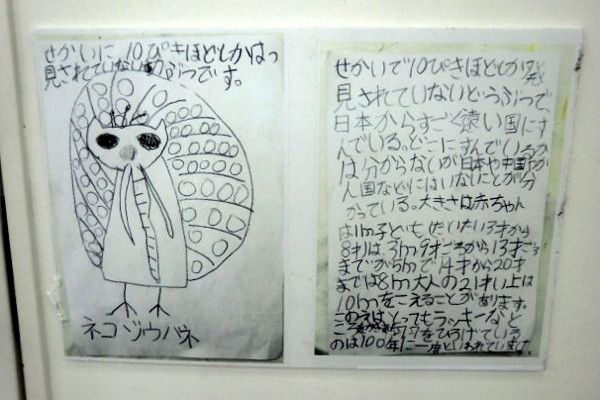 せかいに10ぴきほどしかはっ
見されていないどうぶつです。
ネコゾウバネ
せかいで10ぴきほどしか発
見されていないどうぶつで、
日本からすごく遠い国にす
んでいる。どこにすんでいるか
は分からないが日本や中国やか
ん国などにはいないことが分
かっている。大きさは赤ちゃん
は1m子ども(だいたい3才から
8才)は3m9才ごろから13才ごろ
までが5mで14才から20才
までは8m大人の21才い上は
10mをこえることがあります。
このえはとってもラッキーなと
ころ をひろげている
のは100年に一度といわれていました。